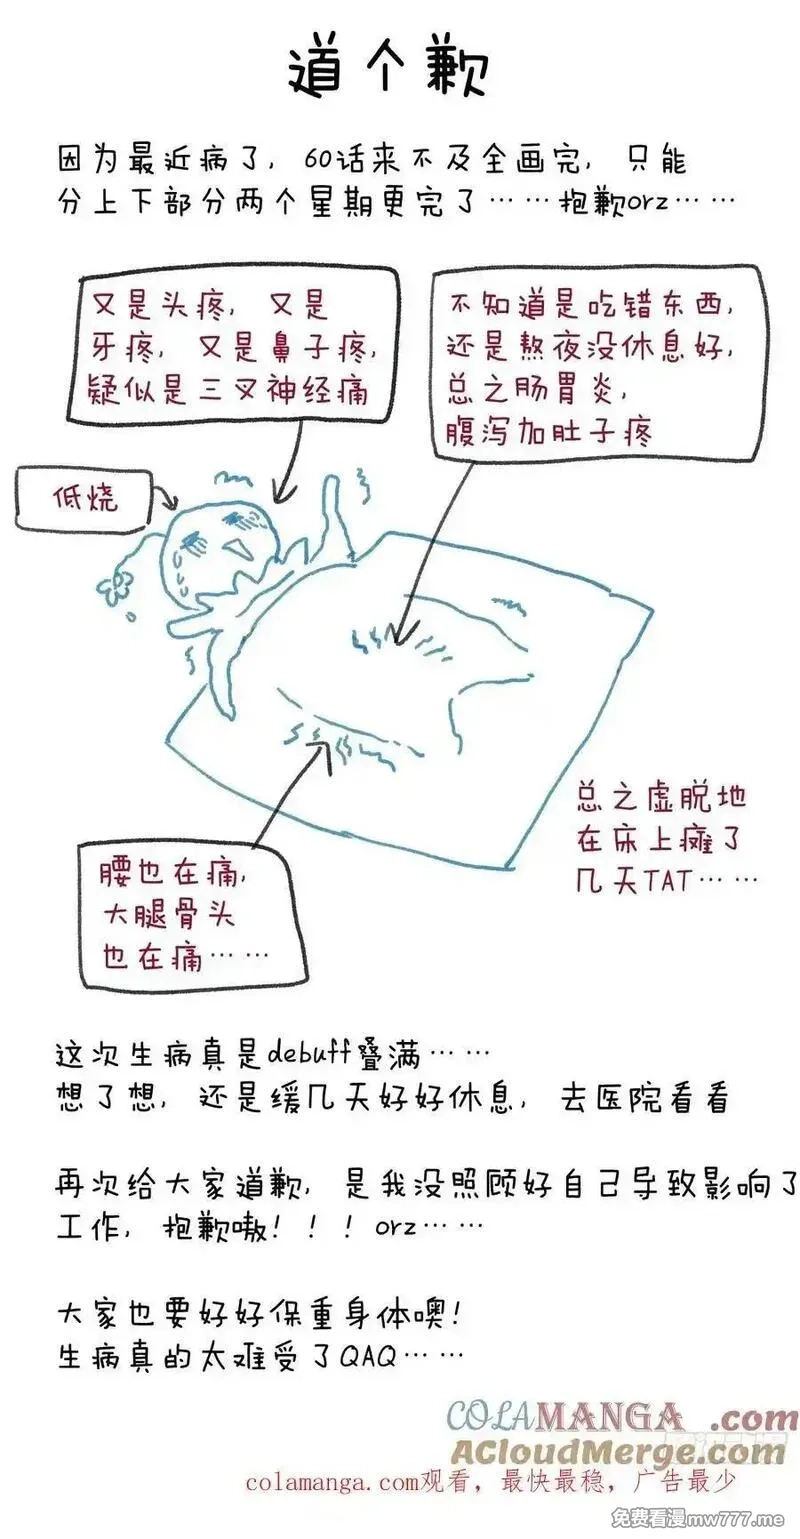 道个歉
因为最近病了，60话来不及全画完，只能
分上下部分两个星期更完了……抱歉orz……
又是头疼，又是
牙疼，又是鼻子疼，
疑似是三叉神经痛
不知道是吃错东西，
还是熬夜没休息好，
总之肠胃炎，
腹泻加肚子疼
低烧
总之虚脱地
在床上瘫了
几天TAT……
腰也在痛，
大腿骨头
也在痛……
这次生病真是debuff叠满……
想了想，还是缓几天好好休息，去医院看看
再次给大家道歉，是我没照顾好自己导致影响了
工作，抱歉嗷！！！orz……
大家也要好好保重身体噢！
生病真的太难受了QAQ……
COLAMANGA.com
ACloudMerge.com
colamanga.com观看，最快最稳，广告最少
免费看漫mw777.me